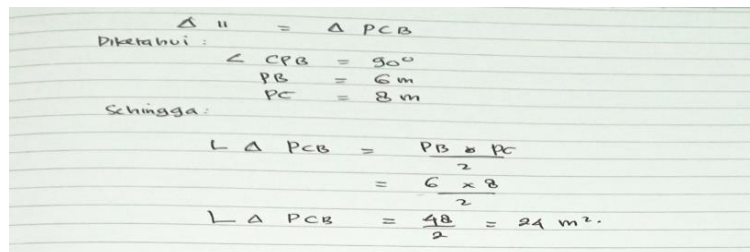 Δ 11 = Δ PCB
Diketahui :
∠ CPB = 90°
PB = 6 m
PC = 8 m
Sehingga :
L Δ PCB = PB × PC / 2
= 6 × 8 / 2
L Δ PCB = 48 / 2 = 24 m².